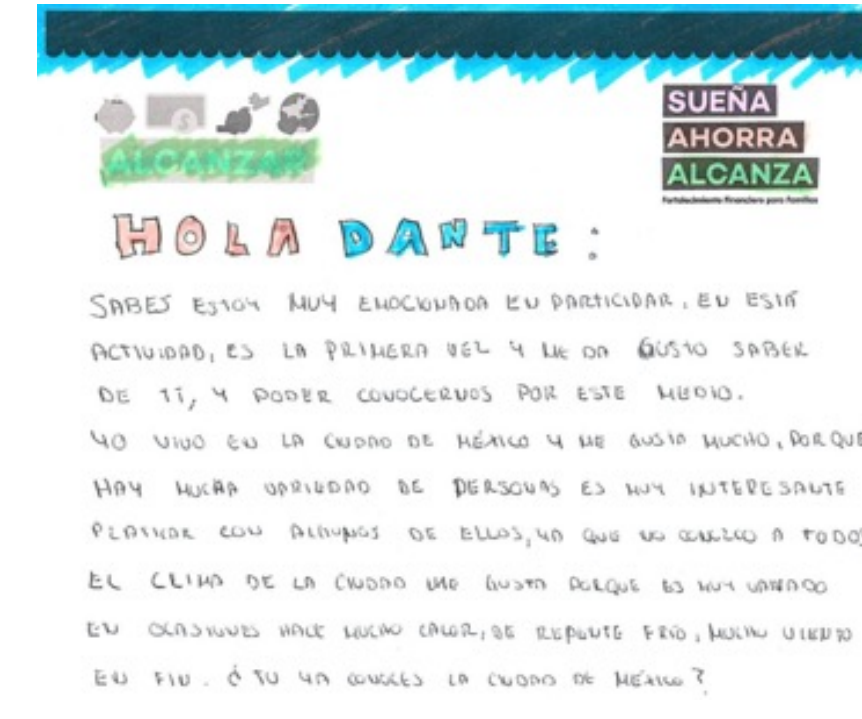 ALCANZAR
SUEÑA
AHORRA
ALCANZA
Fortalecimiento financiero para familias
HOLA DANTE:
SABES ESTOY MUY EMOCIONADA EN PARTICIPAR, EN ESTA
ACTIVIDAD, ES LA PRIMERA VEZ Y ME DA GUSTO SABER
DE TÍ, Y PODER CONOCERNOS POR ESTE MEDIO.
YO VIVO EN LA CIUDAD DE MÉXICO Y ME GUSTA MUCHO, PORQUE
HAY MUCHA VARIEDAD DE PERSONAS ES MUY INTERESANTE
PLATICAR CON ALGUNOS DE ELLOS, YA QUE NO CONOZCO A TODOS
EL CLIMA DE LA CIUDAD ME GUSTA PORQUE ES MUY VARIADO
EN OCASIONES HACE MUCHO CALOR, DE REPENTE FRÍO, MUCHO VIENTO
EN FIN. ¿TU YA CONOCES LA CIUDAD DE MÉXICO?